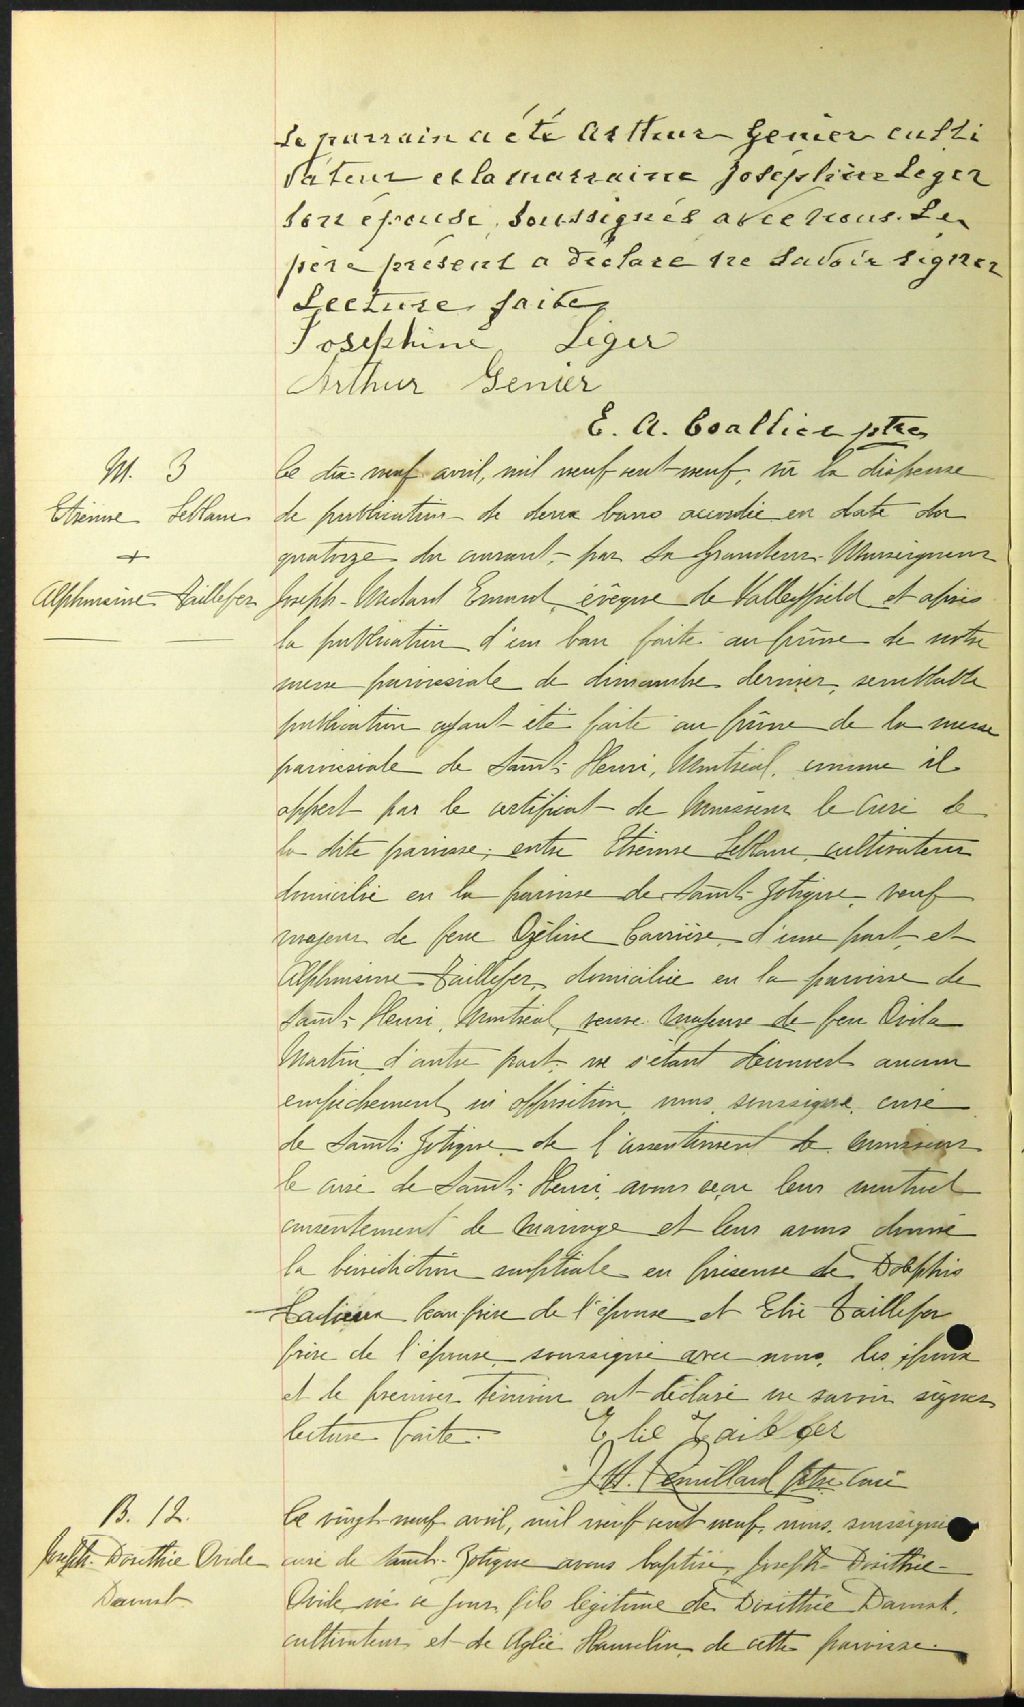 Le parrain a été Arthur Genier culti
vateur et la marraine Joséphine Leger
son épouse, soussignés avec nous. Le
père présent a déclaré ne savoir signer
Lecture faite
Josephine Léger
Arthur Genier
E. A. Coallier ptre
M. 3
Etienne Leblanc
+
Alphonsine Taillefer
Ce dix-neuf avril, mil neuf cent neuf, vu la dispense
de publication de deux bans accordée en date du
quatorze du courant, par Sa Grandeur Monseigneur
Joseph-Médard Emard, évêque de Valleyfield et après
la publication d'un ban faite au prône de notre
messe paroissiale de dimanche dernier, semblable
publication ayant été faite au prône de la messe
paroissiale de Saint-Henri, Montréal, comme il
appert par le certificat de Monsieur le Curé de
la dite paroisse; entre Etienne Leblanc, cultivateur
domicilié en la paroisse de Saint-Zotique, veuf
majeur de feue Ozéline Carrière, d'une part, et
Alphonsine Taillefer, domiciliée en la paroisse de
Saint-Henri, Montréal, veuve majeure de feu Ovila
Martin, d'autre part, ne s'étant découvert aucun
empêchement ni opposition, nous, soussigné, curé
de Saint-Zotique, de l'assentiment de monsieur
le curé de Saint-Henri, avons reçu leur mutuel
consentement de mariage et leur avons donné
la bénédiction nuptiale en présence de Dolphis
Cadieux beau-frère de l'épouse et Elie Taillefer
frère de l'épouse, soussigné avec nous, les époux
et le premier témoin ont déclaré ne savoir signer
lecture faite.
Elie Taillefer
J. H. Remillard Ptre Curé
B. 12.
Joseph-Dosithée Ovide
Daoust
Ce vingt-neuf avril, mil neuf cent neuf, nous, soussigné
curé de Saint-Zotique avons baptisé, Joseph-Dosithée-
Ovide, né ce jour, fils légitime de Dosithée Daoust,
cultivateur et de Aglée Hamelin, de cette paroisse.